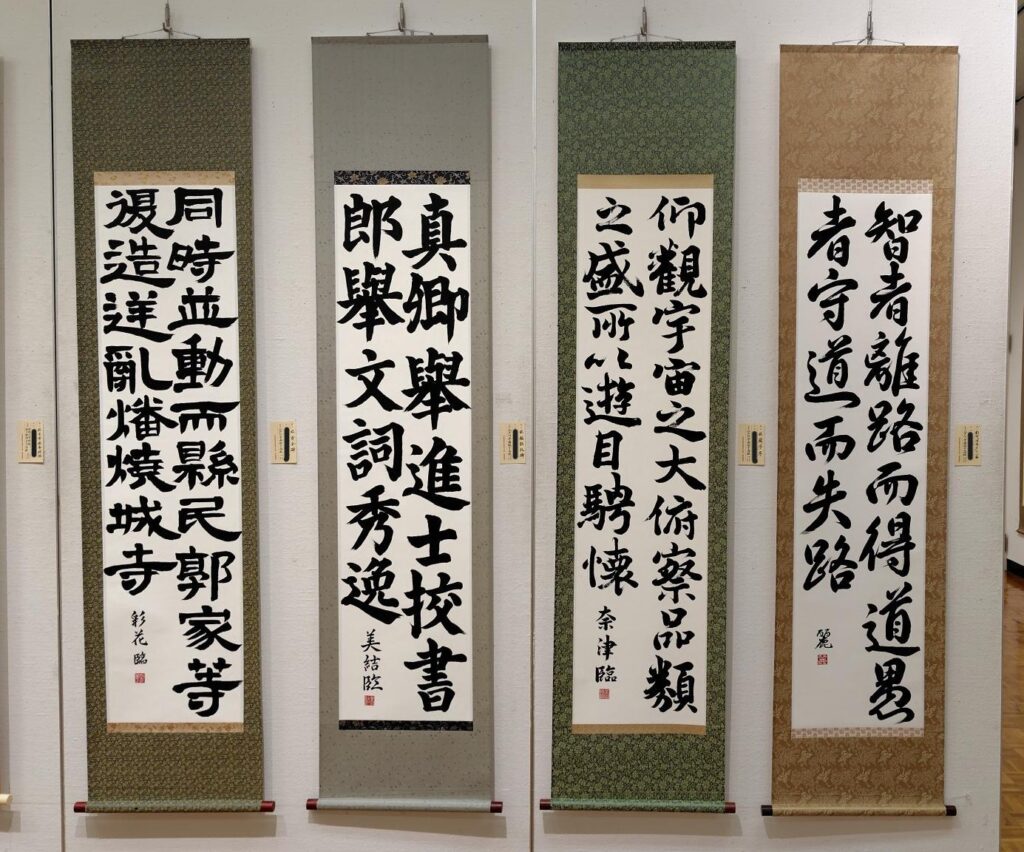 智者離路而得道愚
者守道而失路
麗
仰觀宇宙之大俯察品類
之盛所以遊目騁懷
奈津臨
真卿舉進士挍書
郎舉文詞秀逸
美結臨
同時並動而縣民郭家等
復造逆亂燔燒城寺
彩花臨